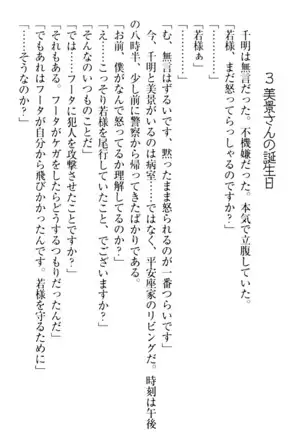 3 美景さんの誕生日
千明は無言だった。不機嫌だった。本気で立腹していた。
「若様、まだ怒ってらっしゃるのですか？」
「…………」
「若様ぁ」
「…………」
「む、無言はずるいです、黙ったまま怒られるのが一番つらいです」
今、千明と美景がいるのは病室……ではなく、平安座家のリビングだ。時刻は午後
の八時半、少し前に警察から帰ってきたばかりである。
「お前、僕がなんで怒ってるか理解してるのか？」
「え……こっそり若様を尾行していたこと、でございますか？」
「そんなのいつものことだ」
「では……フータに犯人を攻撃させたことですか？」
「それもある。フータがケガをしたらどうするつもりだったんだ」
「でもあれはフータが自分から飛びかかったんです。若様を守るために」
「……そうなのか？」